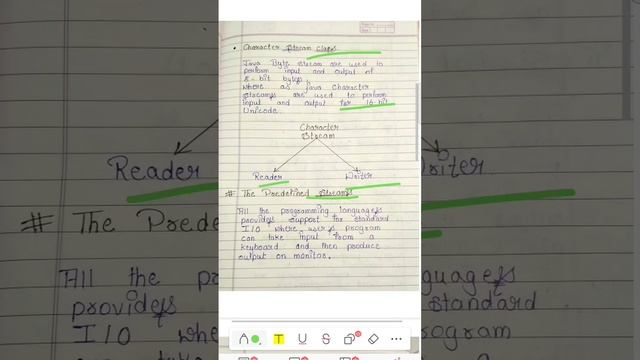 • Character Stream Class
Java Byte stream are used to
perform input and output of
8-bit bytes,
where as java Character
streams are used to perform
input and output for 16-bit
Unicode.
Character
Stream
Reader
Writer
# The Predefined Streams
All the programming languages
provides support for standard
I/O where user's program
can take input from a
keyboard and then produce
output on monitor.
Reader
riter
# The Prede
All the pr
guages
provides
standard
I/O whe
rogram
A T U S